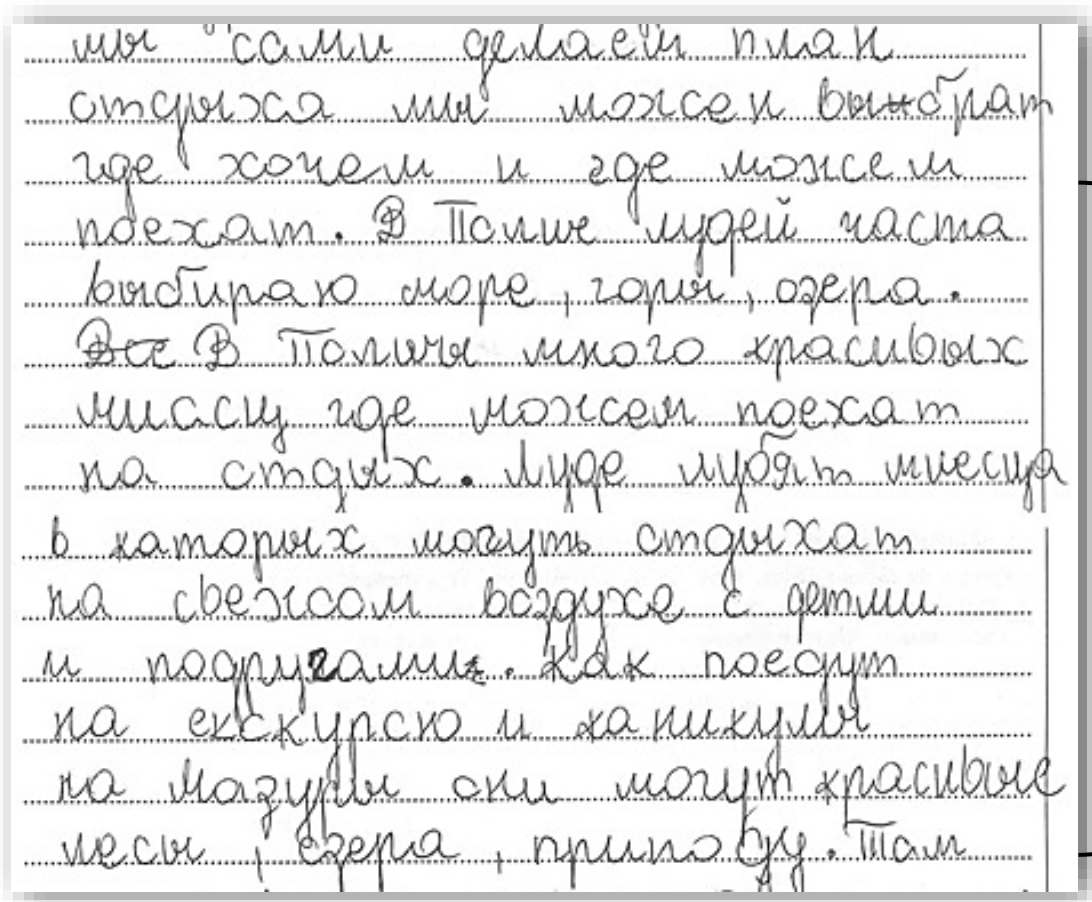 мы сами делаем план
отдыха мы можен выбрат
где хочем и где можем
поехат. В Полше людей часта
выбираю море, горы, озера.
Все В Полшы много красивых
миасцы где можем поехат
на отдых. Луде любят миесца
в каторых могуть отдыхат
на свежом воздухе с детми
и подругами. Как поедут
на екскурсю и каникулы
на Мазуры они могут красивые
лесы, езера, приподу. Там